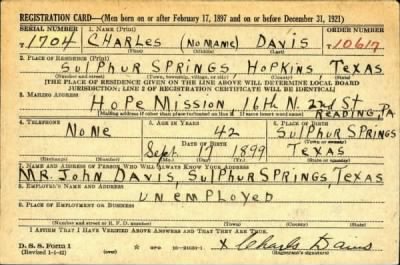 REGISTRATION CARD—(Men born on or after February 17, 1897 and on or before December 31, 1921)
SERIAL NUMBER 1. NAME (Print) ORDER NUMBER
1704 CHARLES (NO NAME) DAVIS 10617
(First) (Middle) (Last)
2. PLACE OF RESIDENCE (Print)
SULPHUR SPRINGS HOPKINS TEXAS
(Number and street) (Town, township, village, or city) (County) (State)
[THE PLACE OF RESIDENCE GIVEN ON THE LINE ABOVE WILL DETERMINE LOCAL BOARD
JURISDICTION; LINE 2 OF REGISTRATION CERTIFICATE WILL BE IDENTICAL]
3. MAILING ADDRESS
HOPE MISSION 16th N. 22nd St
READING, PA
[Mailing address if other than place indicated on line 2. If same insert word same]
4. TELEPHONE 5. AGE IN YEARS 6. PLACE OF BIRTH
NONE 42 SULPHUR SPRINGS
DATE OF BIRTH
Sept 17 1899 TEXAS
(Mo.) (Day) (Yr.)
7. NAME AND ADDRESS OF PERSON WHO WILL ALWAYS KNOW YOUR ADDRESS
MR. JOHN DAVIS, SULPHUR SPRINGS, TEXAS
8. EMPLOYER'S NAME AND ADDRESS
UNEMPLOYED
9. PLACE OF EMPLOYMENT OR BUSINESS
(Number and street or R. F. D. number) (Town) (County) (State)
I AFFIRM THAT I HAVE VERIFIED ABOVE ANSWERS AND THAT THEY ARE TRUE.
D. S. S. Form 1
(Revised 1-1-42) (over) GPO 16—21631-1 X Charles Davis
(Registrant's signature)